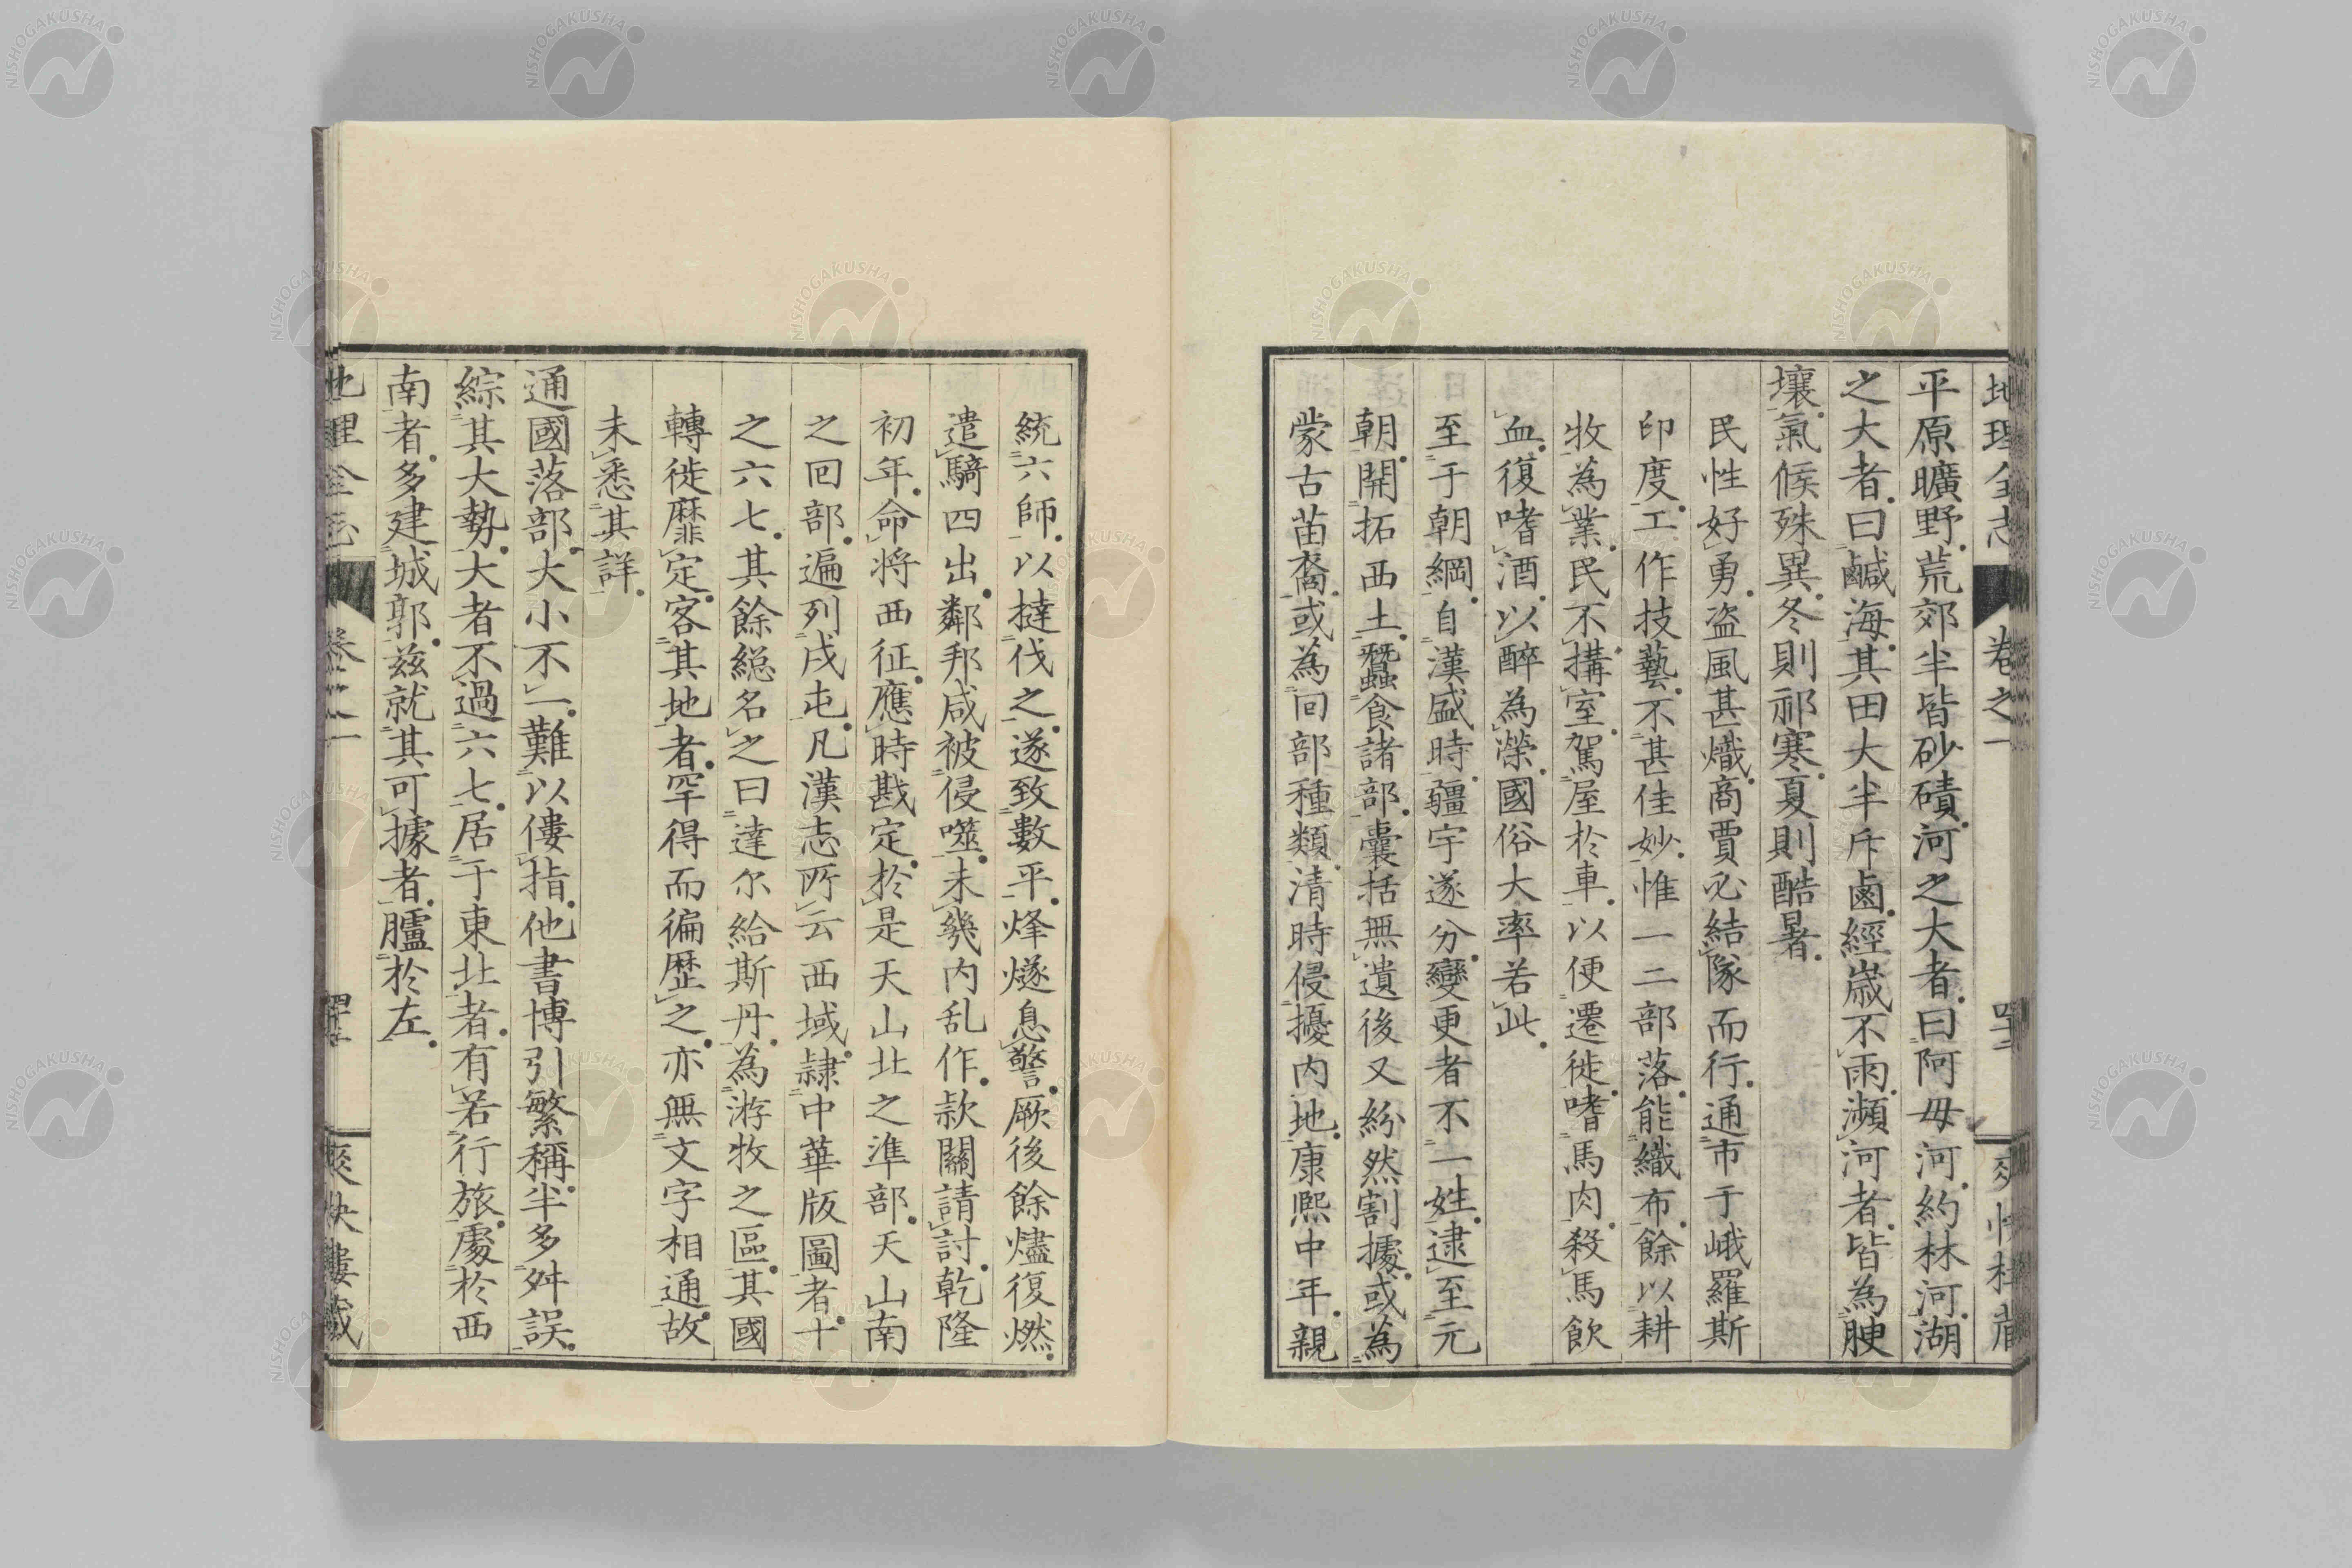 地理全志 卷之一
平原曠野荒郊半皆砂磧河之大者曰阿毋河約林河湖
之大者曰鹹海其田大半斥鹵經歲不雨瀕河者皆為腴
壤氣候殊異冬則祁寒夏則酷暑
民性好勇盗風甚熾商賈必結隊而行通市于峨羅斯
印度工作技藝不甚佳妙惟一二部落能織布餘以耕
牧為業民不搆室駕屋於車以便遷徙嗜馬肉殺馬飲
血復嗜酒以醉為榮國俗大率若此
至于朝綱自漢盛時疆宇遂分變更者不一姓逮至元
朝開拓西土蠶食諸部囊括無遺後又紛然割據或為
蒙古苗裔或為回部種類清時侵擾内地康熙中年親
統六師以撻伐之遂致數平烽燧息警厥後餘燼復燃
遣騎四出鄰邦咸被侵噬未幾内乱作款關請討乾隆
初年命将西征應時戡定於是天山北之準部天山南
之回部遍列戍屯凡漢志所云西域隷中華版圖者十
之六七其餘総名之曰達尓給斯丹為游牧之區其國
轉徙靡定客其地者罕得而徧歴之亦無文字相通故
未悉其詳
通國落部大小不一難以僂指他書博引繁稱半多舛誤
綜其大勢大者不過六七居于東北者有若行旅處於西
南者多建城郭兹就其可據者臚於左
地理全志 卷之一 爽快樓藏
NISHOGAKUSHA